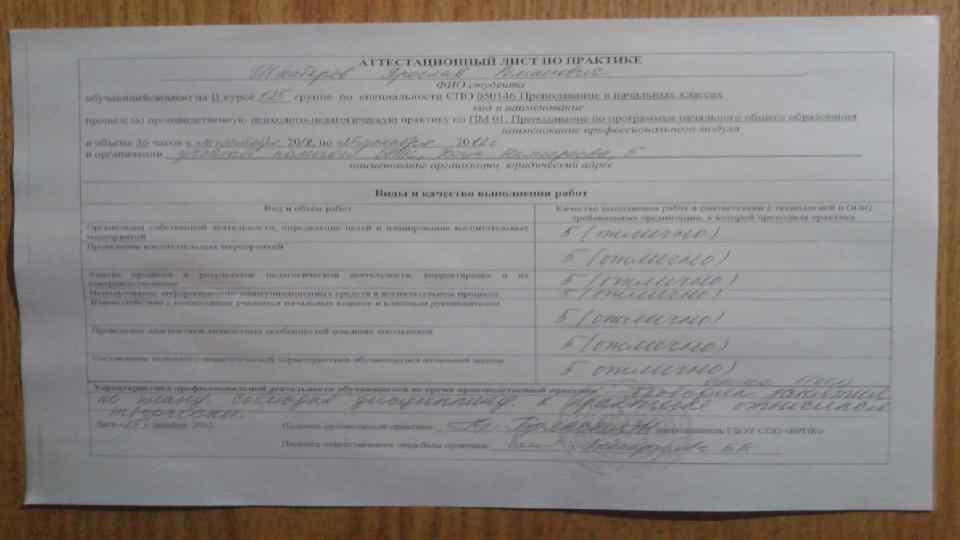 АТТЕСТАЦИОННЫЙ ЛИСТ ПО ПРАКТИКЕ
Ярослав Романович
ФИО студента
обучающийся(аяся) на II курсе 125 группе по специальности СПО 050146 Преподавание в начальных классах
код и наименование
прошел(а) производственную психолого-педагогическую практику по ПМ 01. Преподавание по программам начального общего образования
наименование профессионального модуля
в объеме 36 часов с 20 по декабря 2012г
в организации 5
наименование организации, юридический адрес
Виды и качество выполнения работ
Вид и объем работ
Качество выполнения работ в соответствии с технологией и (или) требованиями организации, в которой проходила практика
Организация собственной деятельности, определение целей и планирование воспитательных мероприятий
5 (отлично)
Проведение воспитательных мероприятий
5 (отлично)
Анализ процесса и результатов педагогической деятельности, корректировка и их совершенствование
5 (отлично)
Использование информационно-коммуникационных средств в воспитательном процессе
5 (отлично)
Взаимодействие с коллективом учащихся начальных классов и классным руководителем
5 (отлично)
Проведение диагностики личностных особенностей младших школьников
5 (отлично)
Составление психолого-педагогической характеристики обучающегося начальной школы
5 (отлично)
Характеристика профессиональной деятельности обучающегося во время производственной практики Проводил занятия
по плану, соблюдал дисциплину, к практике относился
творчески.
Дата декабря 2012 Подпись руководителя практики преподаватель ГБОУ СПО
Подпись ответственного лица базы практики